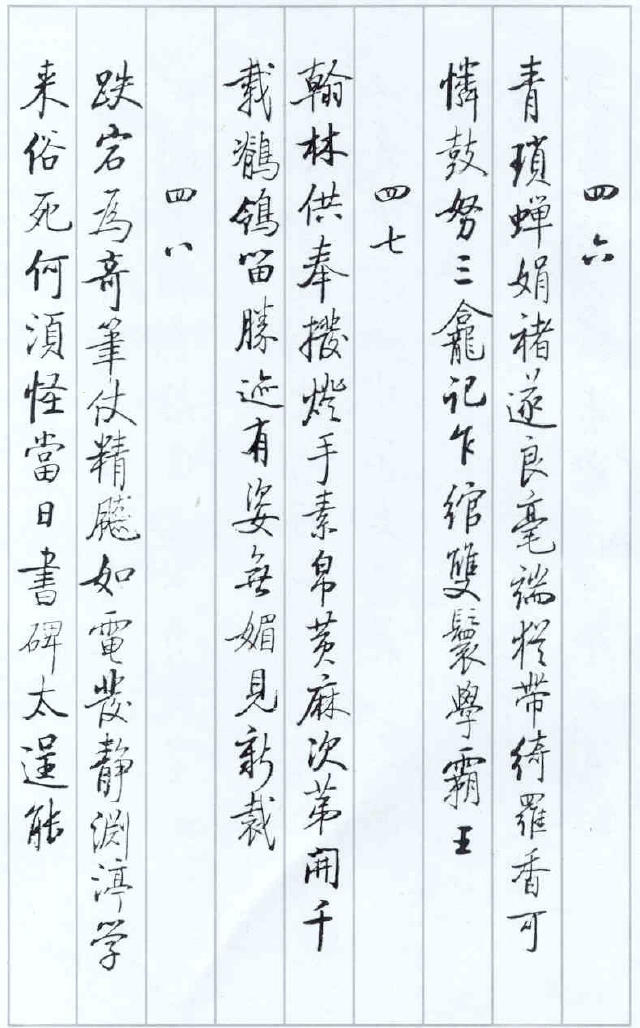 四六
青瑣蟬娟褚遂良毫端猶帶綺羅香可
憐鼓努三龕記乍綰雙鬟學霸王
四七
翰林供奉撥燈手素帛黄麻次苐開千
載鶺鴒留勝迹有姿無媚見新裁
四八
跌宕為奇筆仗精飈如電發静淵渟学
来俗死何須怪當日書碑太逞能